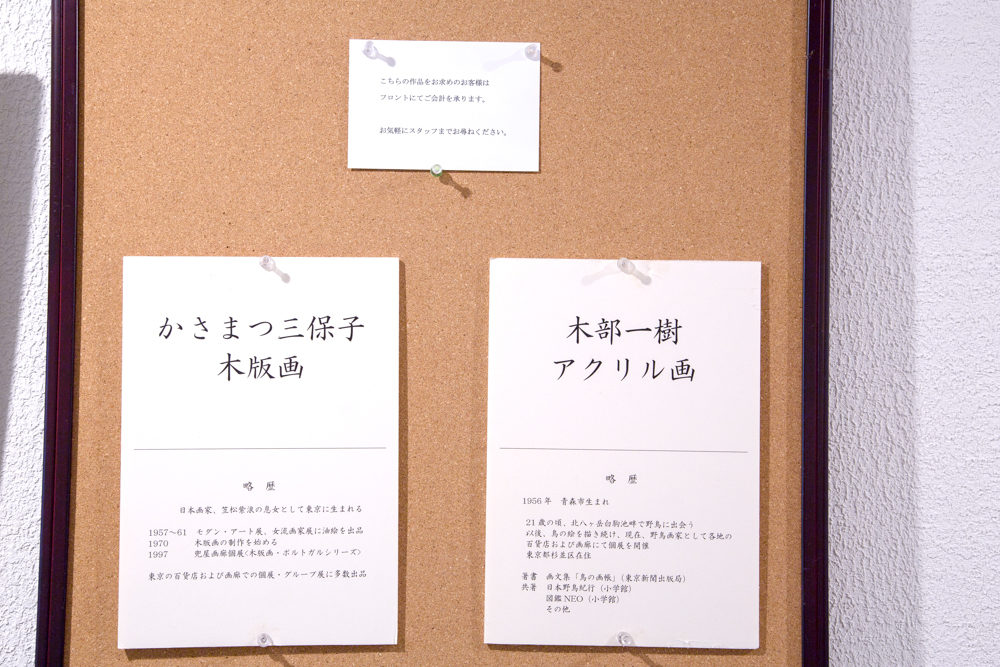 こちらの作品をお求めのお客様は
フロントにてご会計を承ります。
お気軽にスタッフまでお尋ねください。
かさまつ三保子
木版画
略 歴
日本画家、笠松紫浪の息女として東京に生まれる
1957〜61 モダン・アート展、女流画家展に油絵を出品
1970 木版画の制作を始める
1997 兜屋画廊個展<木版画・ポルトガルシリーズ>
東京の百貨店および画廊での個展・グループ展に多数出品
木部一樹
アクリル画
略 歴
1956年 青森市生まれ
21歳の頃、北八ヶ岳白駒池畔で野鳥に出会う
以後、鳥の絵を描き続け、現在、野鳥画家として各地の
百貨店および画廊にて個展を開催
東京都杉並区在住
著書 画文集「鳥の画帳」(東京新聞出版局)
共著 日本野鳥紀行(小学館)
図鑑NEO(小学館)
その他